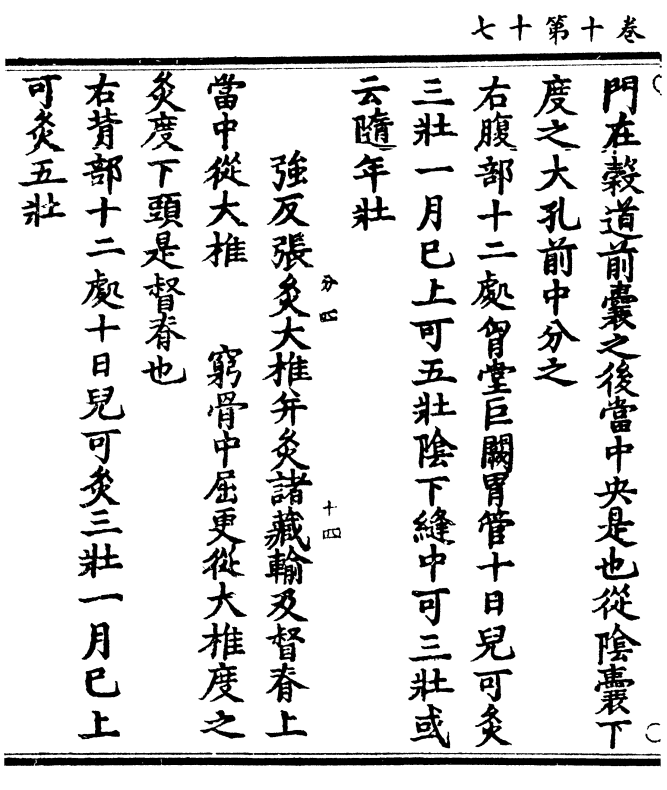 卷十第十七
門在榖道前囊之後當中央是也從陰囊下
度之大孔前中分之
右腹部十二處胷堂巨闕胃管十日兒可灸
三壯一月巳上可五壯陰下縫中可三壯或
云隨年壯
分四
十四
強反張灸大椎并灸諸藏輸及督脊上
當中從大椎　窮骨中屈更從大椎度之
灸度下頭是督脊也
右背部十二處十日兒可灸三壯一月巳上
可灸五壯